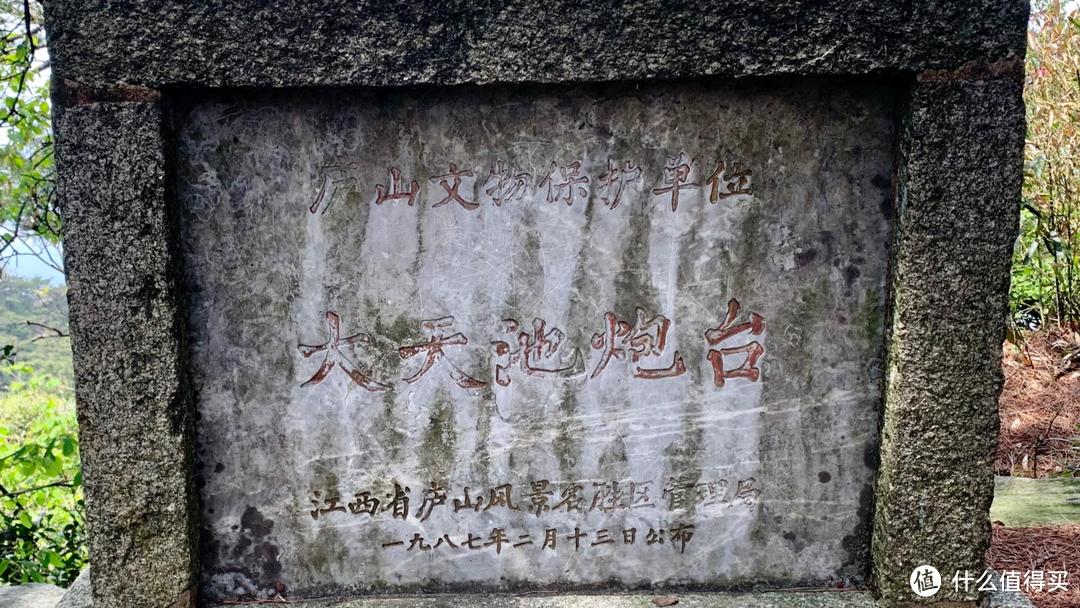 庐山文物保护单位
大天池炮台
江西省庐山风景名胜区管理局
一九八七年二月十三日公布
值 什么值得买